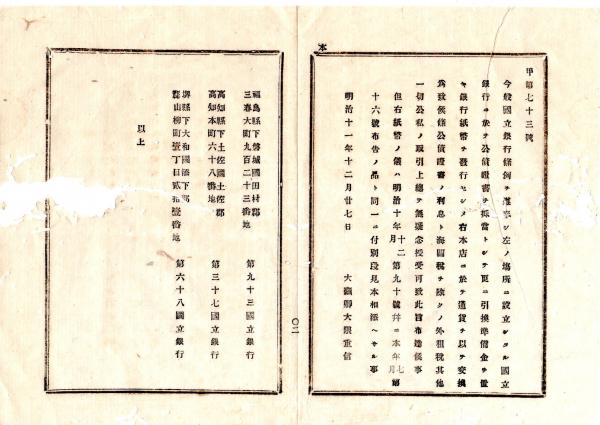 本
甲第七十三號
今般國立銀行條例ヲ遵奉シ左ノ場所ニ設立シタル國立
銀行ニ於テ公債證書ヲ抵當トシテ更ニ引換準備金ヲ置
キ銀行紙幣ヲ發行セシメ右本店ニ於テ通貨ヲ以テ交換
爲致候條公債證書ノ利息ト海關稅ヲ除クノ外租稅其他
一切公私ノ取引上總テ無疑念授受可致此旨布達候事
但右紙幣ノ儀ハ明治十年十二月第九十號幷ニ本年七月第
十六號布告ノ品ト同一ニ付別段見本相添ヘサル事
明治十一年十二月廿七日
大藏卿大隈重信
〇二
福島縣下磐城國田村郡
三春大町九百二十三番地
第九十三國立銀行
高知縣下土佐國土佐郡
高知本町六十八番地
第三十七國立銀行
堺縣下大和國添下郡
郡山柳町壹丁目貳拾壹番地
第六十八國立銀行
以上